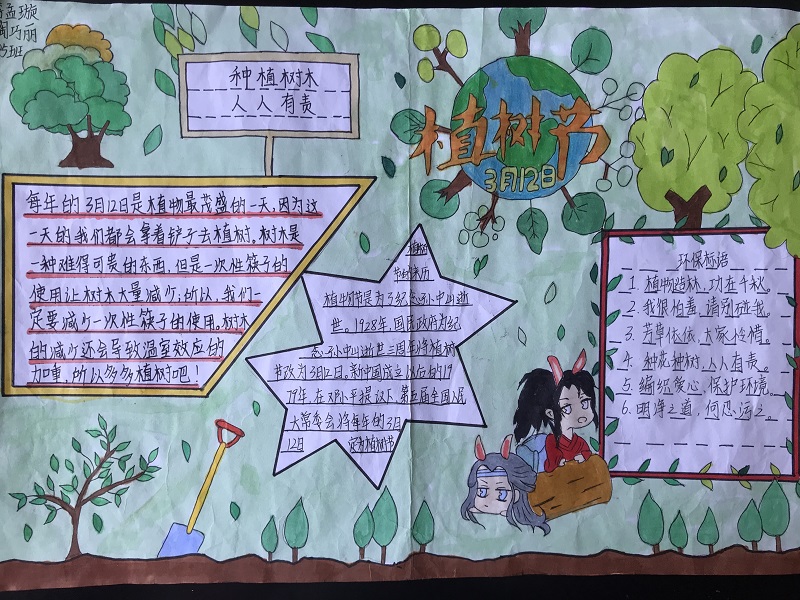 孟璇
周巧朋
班
种植树木
人人有责
植树节
3月12日
每年的3月12日是植物最茂盛的一天,因为这
一天的我们都会拿着铲子去植树。树木是
一种难得可贵的东西,但是一次性筷子的
使用让树木大量减少;所以,我们一
定要减少一次性筷子的使用。树木
的减少还会导致温室效应的
加重,所以多多植树吧!
植树
节的来历
植树节是为了纪念孙中山逝
世。1928年,国民政府为纪
念孙中山逝世三周年将植树
节改为3月12日。新中国成立以后的19
79年,在邓小平提议下,第五届全国人民
大常委会将每年的3月
12日 定为植树节
环保标语
1. 植物造林,功在千秋。
2. 我很怕羞,请别碰我。
3. 芳草依依,大家怜惜。
4. 种花种树,人人有责。
5. 编织爱心,保护环境。
6. 明净之道,何忍污之。